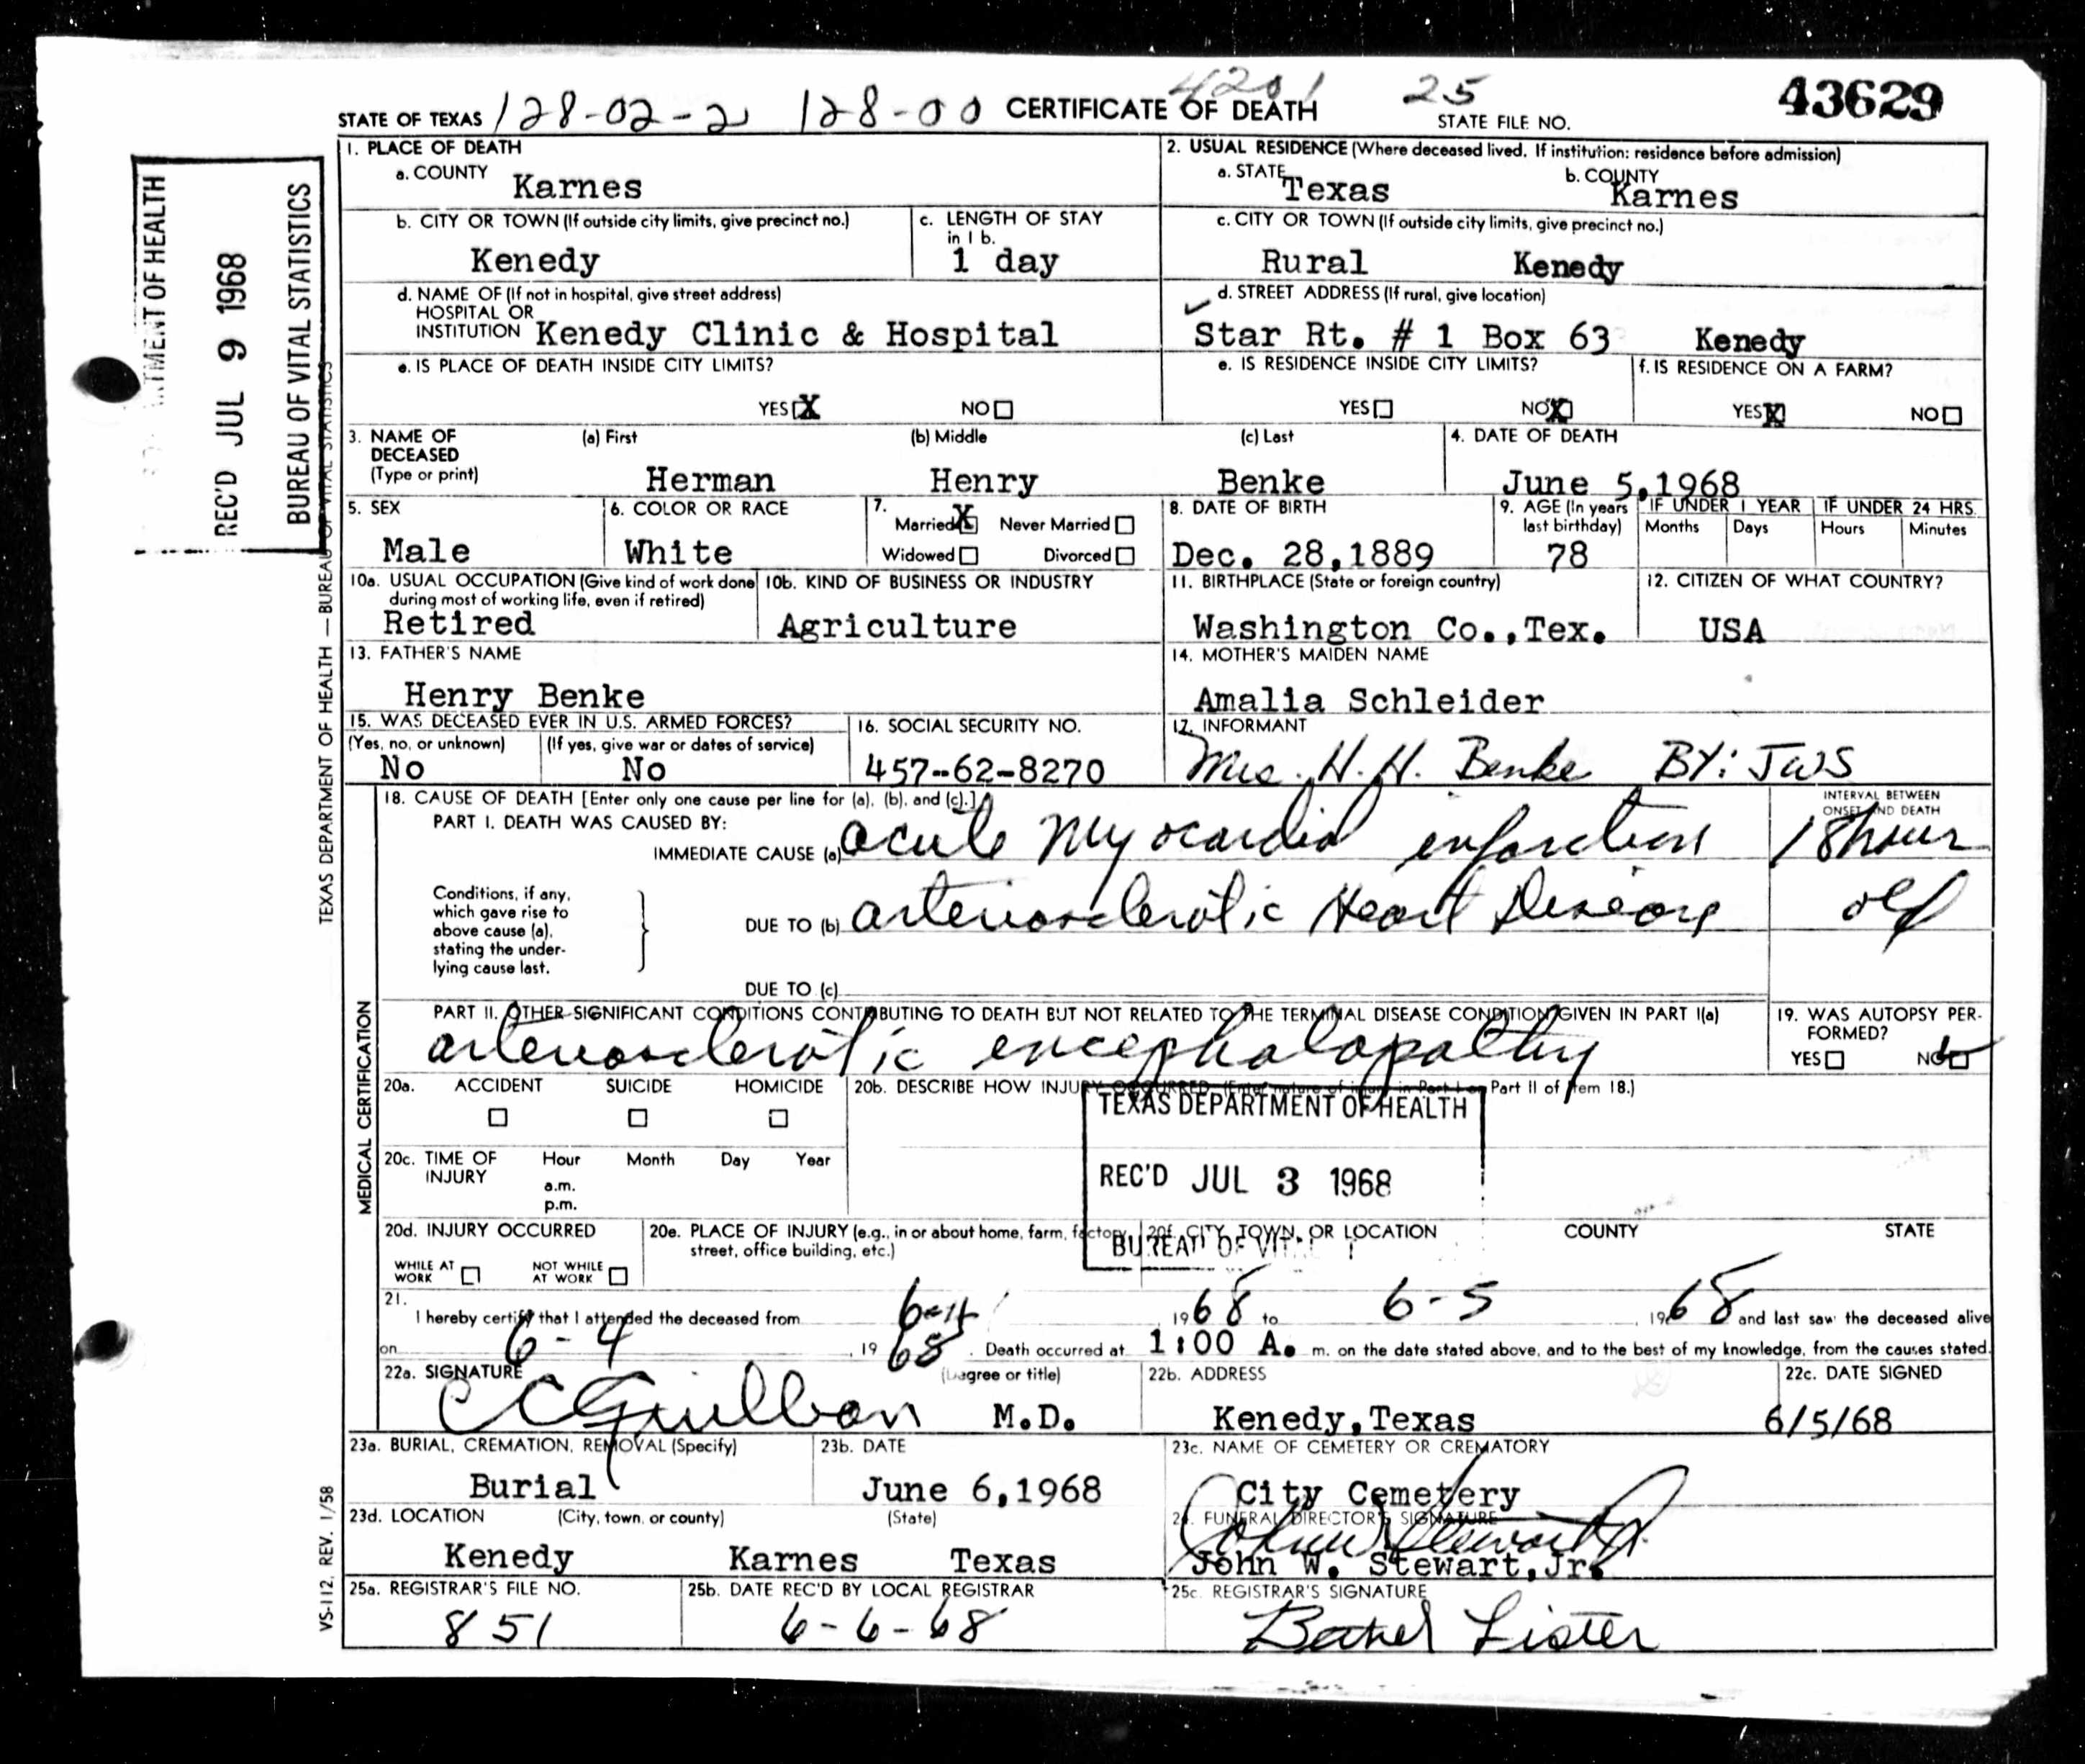 4201 25 43629
STATE OF TEXAS 128-02-2 128-00 CERTIFICATE OF DEATH STATE FILE NO.
TMENT OF HEALTH
REC'D JUL 9 1968
BUREAU OF VITAL STATISTICS
TEXAS DEPARTMENT OF HEALTH — BUREAU OF VITAL STATISTICS
1. PLACE OF DEATH
a. COUNTY Karnes
2. USUAL RESIDENCE (Where deceased lived. If institution: residence before admission)
a. STATE Texas b. COUNTY Karnes
b. CITY OR TOWN (If outside city limits, give precinct no.)
Kenedy
c. LENGTH OF STAY
in 1 b.
1 day
c. CITY OR TOWN (If outside city limits, give precinct no.)
Rural Kenedy
d. NAME OF (If not in hospital, give street address)
HOSPITAL OR
INSTITUTION Kenedy Clinic & Hospital
d. STREET ADDRESS (If rural, give location)
Star Rt. # 1 Box 63 Kenedy
e. IS PLACE OF DEATH INSIDE CITY LIMITS?
YES X NO
e. IS RESIDENCE INSIDE CITY LIMITS?
YES NO X
f. IS RESIDENCE ON A FARM?
YES X NO
3. NAME OF
DECEASED
(Type or print)
(a) First (b) Middle (c) Last
Herman Henry Benke
4. DATE OF DEATH
June 5,1968
5. SEX
Male
6. COLOR OR RACE
White
7.
Married X Never Married
Widowed Divorced
8. DATE OF BIRTH
Dec. 28,1889
9. AGE (In years
last birthday)
78
IF UNDER 1 YEAR
Months Days
IF UNDER 24 HRS.
Hours Minutes
10a. USUAL OCCUPATION (Give kind of work done
during most of working life, even if retired)
Retired
10b. KIND OF BUSINESS OR INDUSTRY
Agriculture
11. BIRTHPLACE (State or foreign country)
Washington Co.,Tex.
12. CITIZEN OF WHAT COUNTRY?
USA
13. FATHER'S NAME
Henry Benke
14. MOTHER'S MAIDEN NAME
Amalia Schleider
15. WAS DECEASED EVER IN U.S. ARMED FORCES?
(Yes, no, or unknown) (If yes, give war or dates of service)
No No
16. SOCIAL SECURITY NO.
457-62-8270
17. INFORMANT
Mrs. H. H. Benke BY: JWS
MEDICAL CERTIFICATION
18. CAUSE OF DEATH [Enter only one cause per line for (a), (b), and (c).]
PART I. DEATH WAS CAUSED BY:
IMMEDIATE CAUSE (a) acute myocardial infarction
INTERVAL BETWEEN
ONSET AND DEATH
18 hour
Conditions, if any,
which gave rise to
above cause (a),
stating the under-
lying cause last.
DUE TO (b) arteriosclerotic Heart Disease old
DUE TO (c)
PART II. OTHER SIGNIFICANT CONDITIONS CONTRIBUTING TO DEATH BUT NOT RELATED TO THE TERMINAL DISEASE CONDITION GIVEN IN PART I(a)
arteriosclerotic encephalopathy
19. WAS AUTOPSY PER-
FORMED?
YES NO
20a. ACCIDENT SUICIDE HOMICIDE
20b. DESCRIBE HOW INJURY OCCURRED (Enter nature of injury in Part I or Part II of item 18.)
TEXAS DEPARTMENT OF HEALTH
REC'D JUL 3 1968
BUREAU OF
20c. TIME OF
INJURY
Hour Month Day Year
a.m.
p.m.
20d. INJURY OCCURRED
WHILE AT
WORK
NOT WHILE
AT WORK
20e. PLACE OF INJURY (e.g., in or about home, farm, factory,
street, office building, etc.)
20f. CITY, TOWN, OR LOCATION COUNTY STATE
21.
I hereby certify that I attended the deceased from 6-4 1968 to 6-5, 1968 and last saw the deceased alive
on 6-4, 1968. Death occurred at 1:00 A. m. on the date stated above, and to the best of my knowledge, from the causes stated.
22a. SIGNATURE (Degree or title)
M.D.
22b. ADDRESS
Kenedy,Texas
22c. DATE SIGNED
6/5/68
23a. BURIAL, CREMATION, REMOVAL (Specify)
Burial
23b. DATE
June 6,1968
23c. NAME OF CEMETERY OR CREMATORY
City Cemetery
23d. LOCATION (City, town, or county) (State)
Kenedy Karnes Texas
24. FUNERAL DIRECTOR'S SIGNATURE
John W. Stewart Jr.
John W. Stewart,Jr.
25a. REGISTRAR'S FILE NO.
851
25b. DATE REC'D BY LOCAL REGISTRAR
6-6-68
25c. REGISTRAR'S SIGNATURE
Bethel Lister
VS-112, REV. 1/58